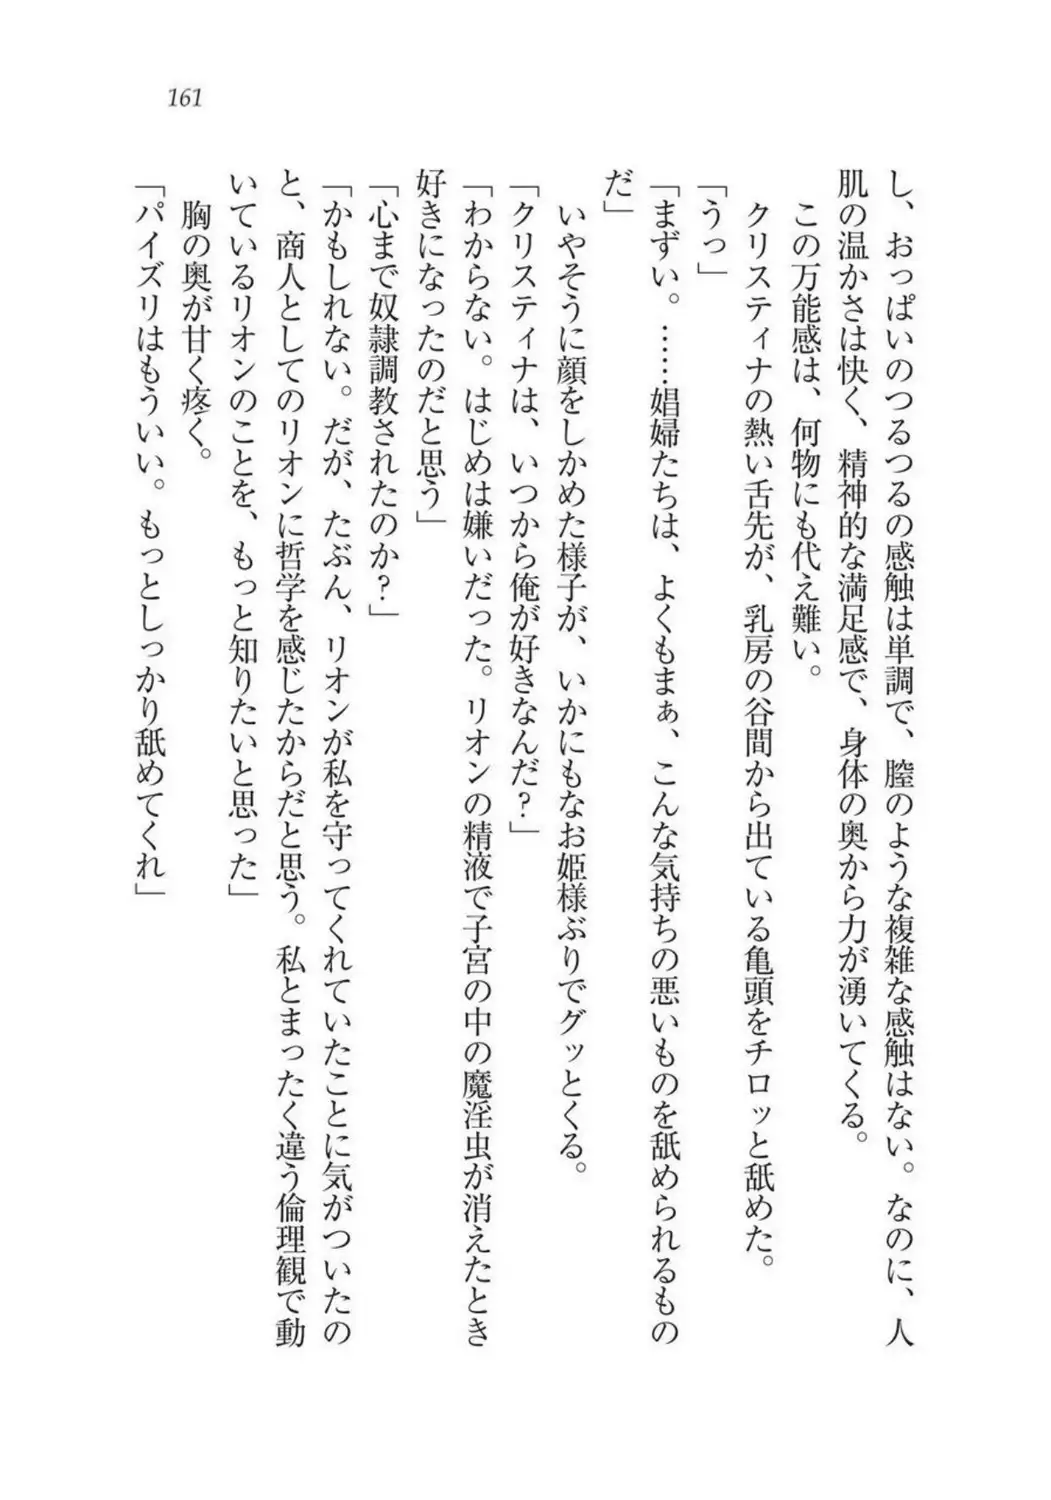 161
し、おっぱいのつるつるの感触は単調で、膣のような複雑な感触はない。なのに、人
肌の温かさは快く、精神的な満足感で、身体の奥から力が湧いてくる。
この万能感は、何物にも代え難い。
クリスティナの熱い舌先が、乳房の谷間から出ている亀頭をチロッと舐めた。
「うっ」
「まずい。……娼婦たちは、よくもまぁ、こんな気持ちの悪いものを舐められるもの
だ」
いやそうに顔をしかめた様子が、いかにもなお姫様ぶりでグッとくる。
「クリスティナは、いつから俺が好きなんだ？」
「わからない。はじめは嫌いだった。リオンの精液で子宮の中の魔淫虫が消えたとき
好きになったのだと思う」
「心まで奴隷調教されたのか？」
「かもしれない。だが、たぶん、リオンが私を守ってくれていたことに気がついたの
と、商人としてのリオンに哲学を感じたからだと思う。私とまったく違う倫理観で動
いているリオンのことを、もっと知りたいと思った」
胸の奥が甘く疼く。
「パイズリはもういい。もっとしっかり舐めてくれ」